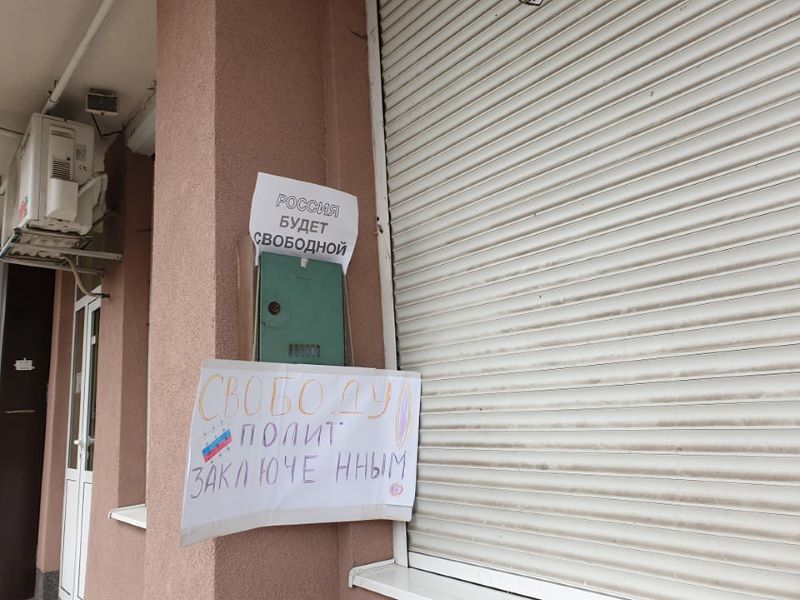 РОССИЯ
БУДЕТ
СВОБОДНОЙ
СВОБОДУ!
ПОЛИТ
ЗАКЛЮЧЕННЫМ